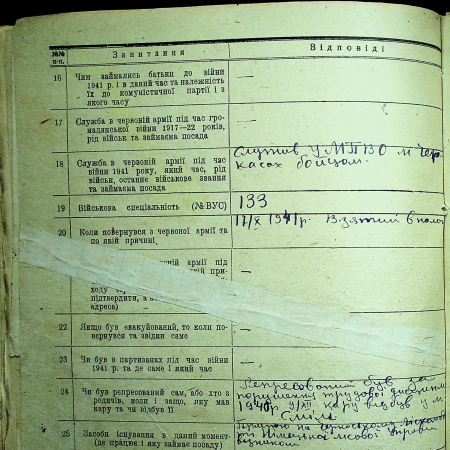 №№ п-п.
Запитання
Відповіді
16
Чим займались батьки до війни
1941 р. і в даний час та належність
їх до комуністичної партії і з
якого часу
—
17
Служба в червоній армії під час гро-
мадянської війни 1917—22 років,
рід військ та займаєма посада
—
18
Служба в червоній армії під час
війни 1941 року, який час, рід
військ, останнє військове звання
та займаєма посада
Служив у МПВО м Чер-
касах бойцом.
19
Військова спеціальність (№ ВУС)
133
20
Коли повернувся з червоної армії та
по якій причині
17/X 1941 р. Взятий в полон
армії під
ході
підтвердити, а
адреса)
—
22
Якщо був евакуйований, то коли по-
вернувся та звідки саме
—
23
Чи був в партизанах під час війни
1941 р. та де саме і який час
—
24
Чи був репресований сам, або хто з
родичів, коли і защо, яку мав
кару та чи відбув її
Репресований був за
порушення трудової дисципліни
1940 р. кару відбув у м.
Сміла
25
Засоби існування в даний момент
(де працює і яку займає посаду)